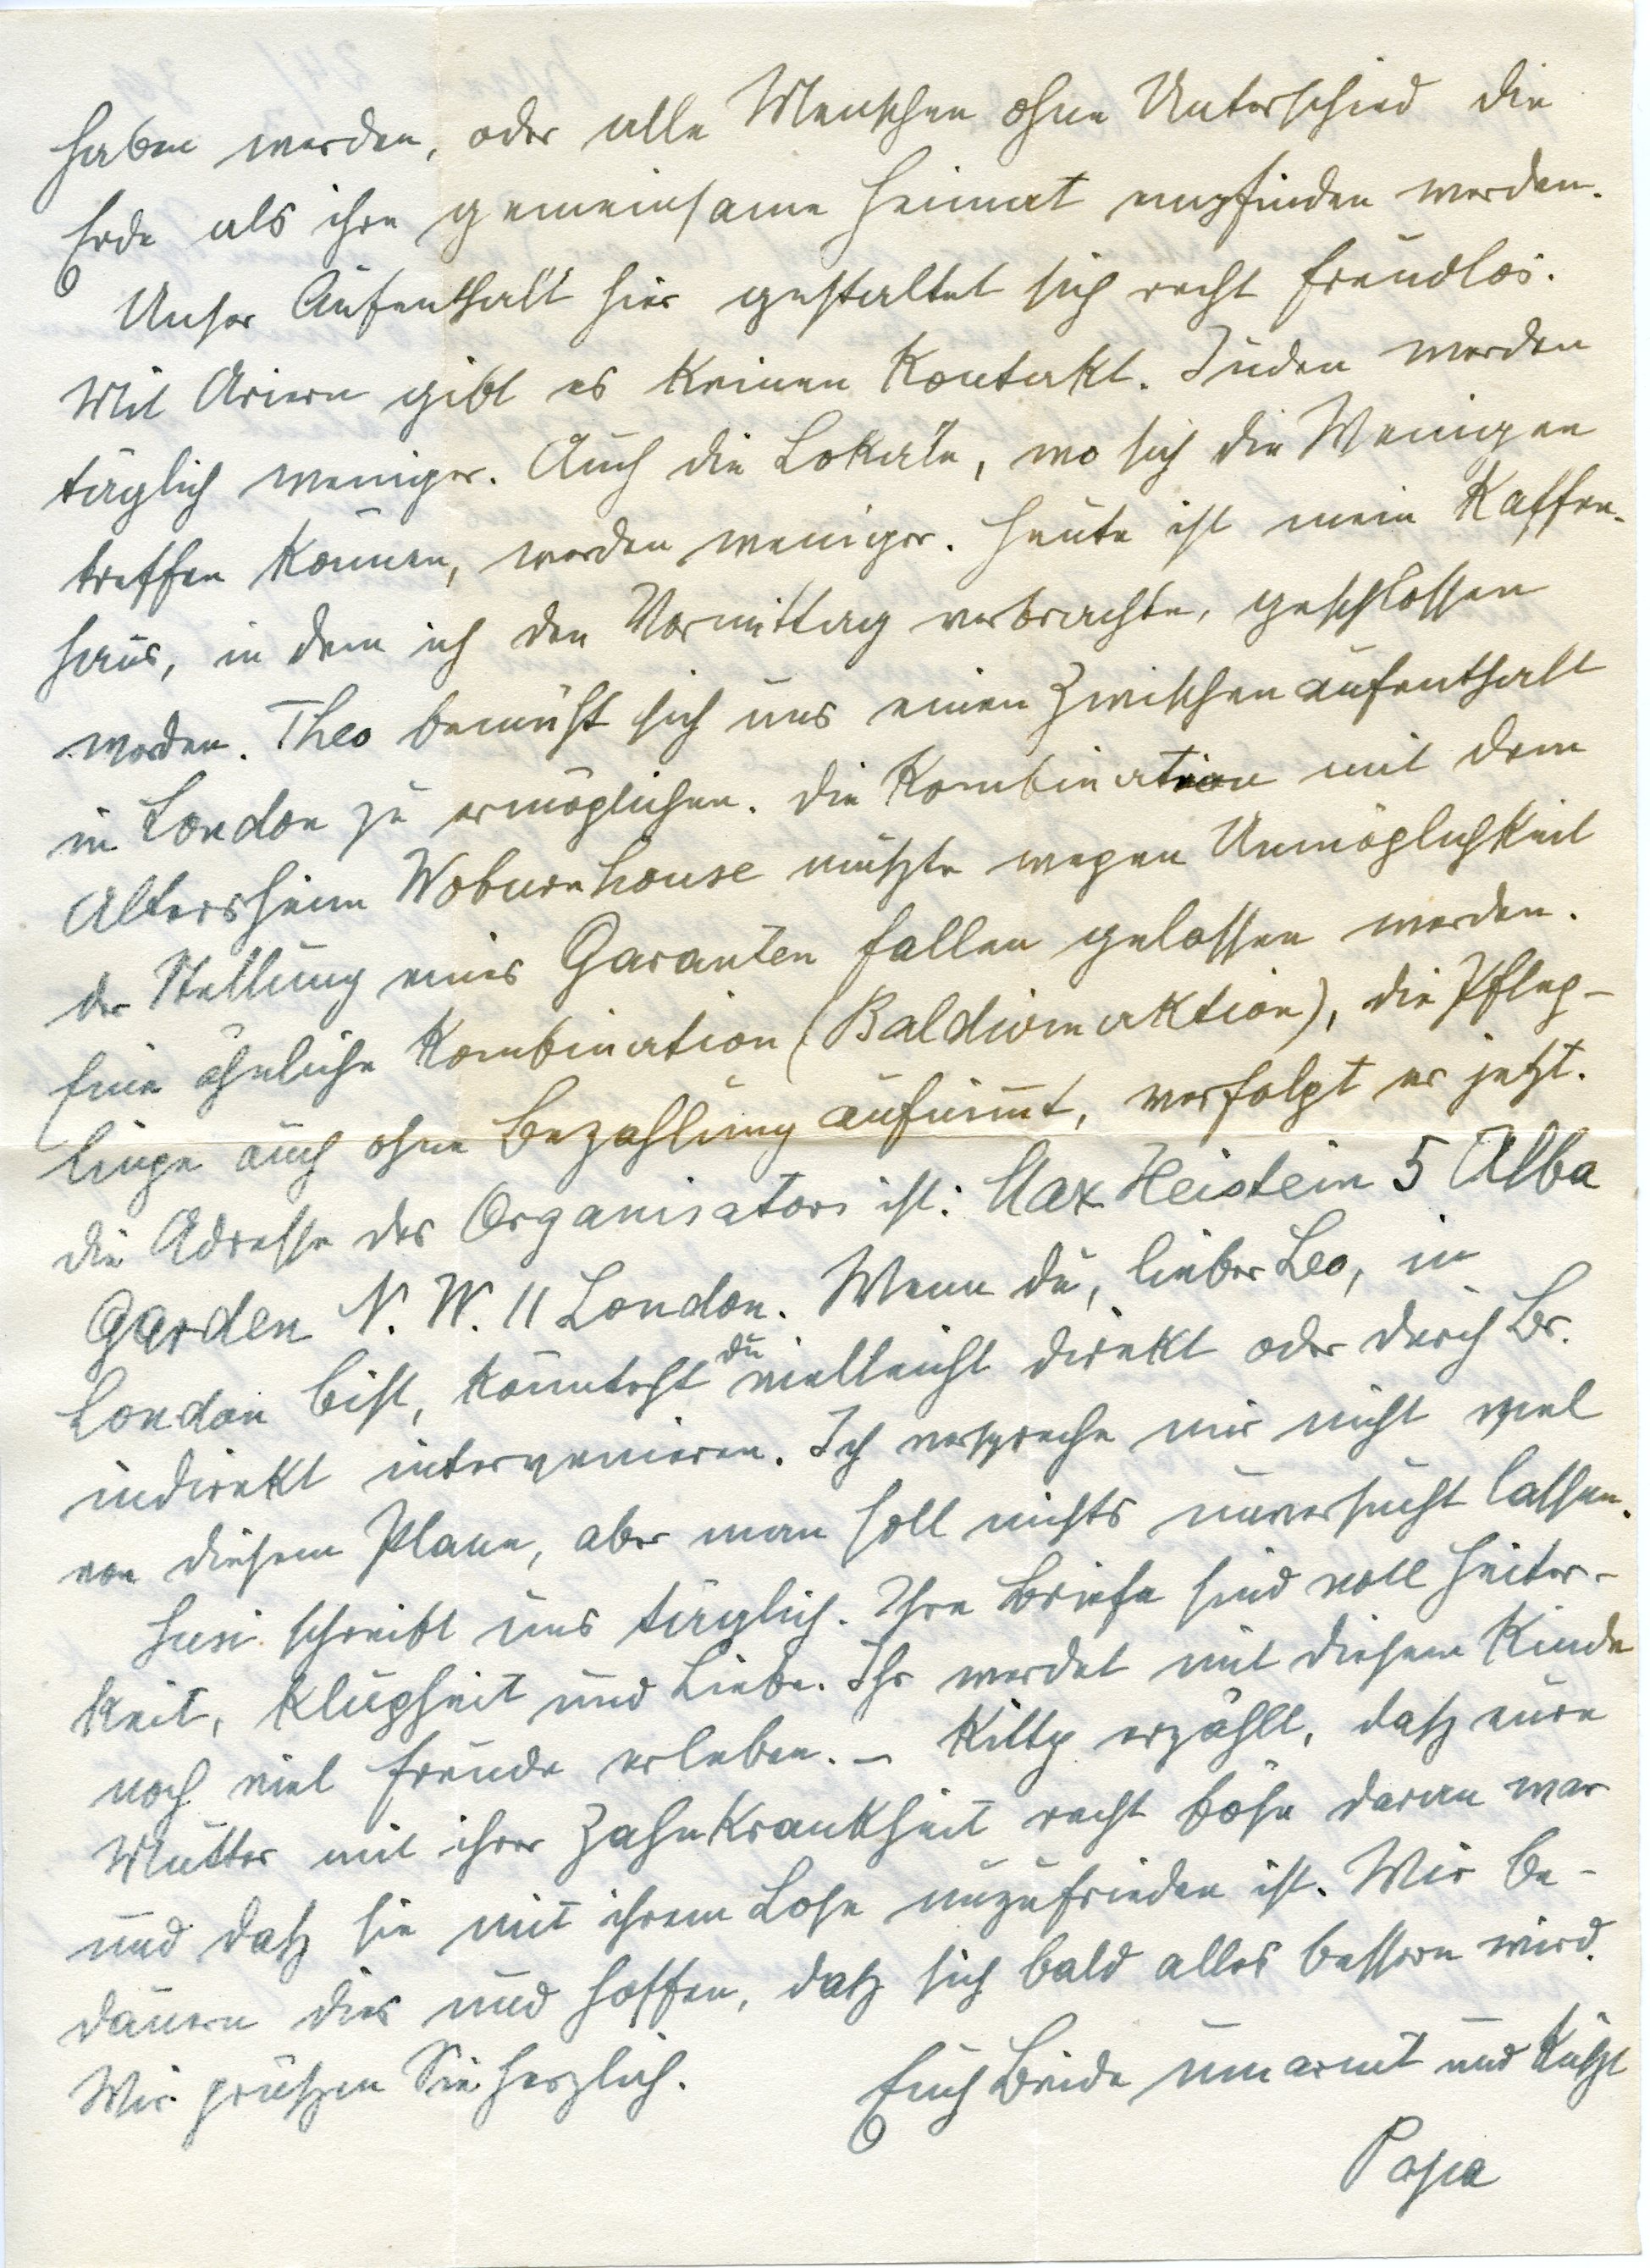 haben werden, oder alle Menschen ohne Unterschied die
Erde als ihre gemeinsame Heimat empfinden werden.
Unser Aufenthalt hier gestaltet sich recht freudlos.
Mit Ariern gibt es keinen Kontakt. Juden werden
täglich weniger. Auch die Lokale, wo sich die Wenigen
treffen können, werden weniger. Heute ist mein Kaffee-
haus, in dem ich den Vormittag verbrachte, geschlossen
worden. Theo bemüht sich uns einen Zwischenaufenthalt
in London zu ermöglichen. Die Kombination mit dem
Altersheim Woburnhouse mußte wegen Unmöglichkeit
der Stellung eines Garanten fallen gelassen werden.
Eine ähnliche Kombination (Baldwinaktion), die Pfleg-
linge auch ohne Bezahlung aufnimmt, verfolgt er jetzt.
Die Adresse des Organisators ist: Max Heistein 5 Alba
Garden N. W. 11 London. Wenn du, lieber Leo, in
London bist, könntest du vielleicht direkt oder durch Br.
indirekt intervenieren. Ich verspreche mir nicht viel
von diesem Plane, aber man soll nichts unversucht lassen.
Susi schreibt uns täglich. Ihre Briefe sind voll Heiter-
keit, Klugheit und Liebe. Ihr werdet mit diesem Kinde
noch viel Freude erleben. – Kitty erzählt, daß eure
Mutter mit ihrer Zahnkrankheit recht böse daran war
und daß sie mit ihrem Lose unzufrieden ist. Wir be-
dauern dies und hoffen, daß sich bald alles bessern wird.
Wir grüßen Sie herzlich.
Euch Beide umarmt und küßt
Papa